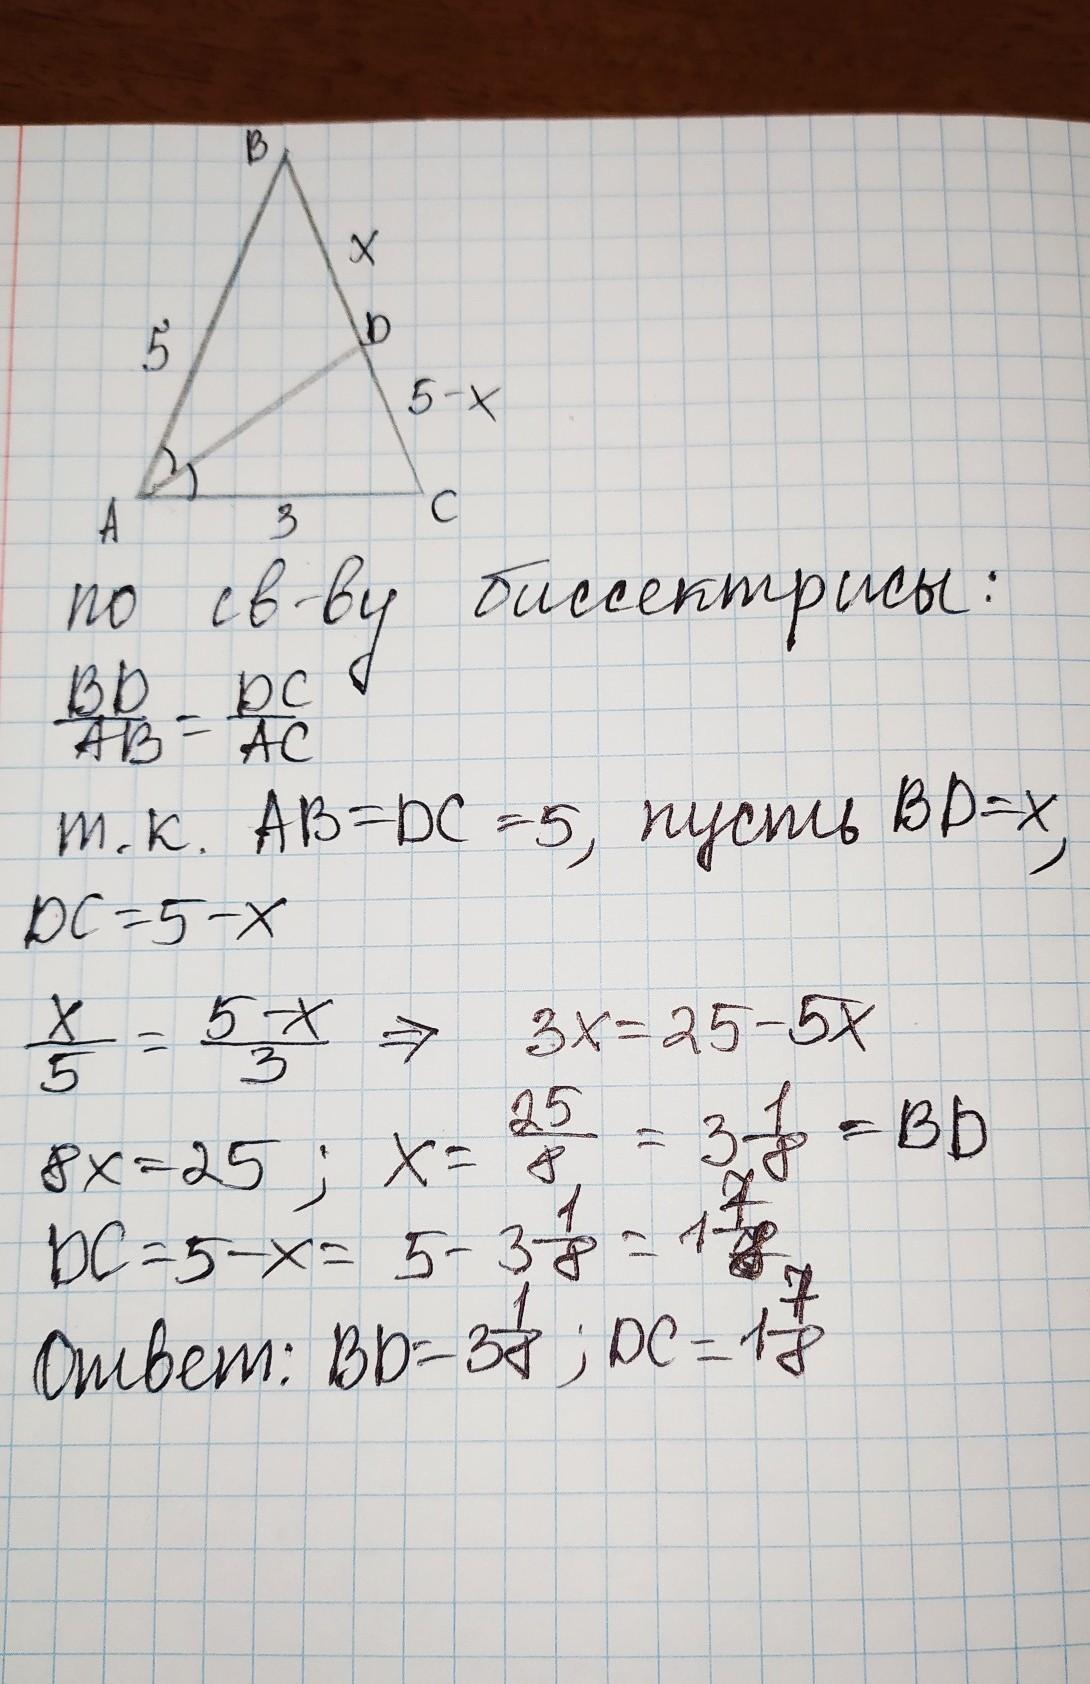 B
x
5
D
5-x
A
3
C
по св-ву биссектрисы:
BD/AB = DC/AC
т.к. AB=DC=5, пусть BD=x,
DC=5-x
x/5 = 5-x/3 ⇒ 3x=25-5x
8x=25; x= 25/8 = 3 1/8 = BD
DC=5-x= 5- 3 1/8 = 1 7/8
Ответ: BD=3 1/8; DC=1 7/8